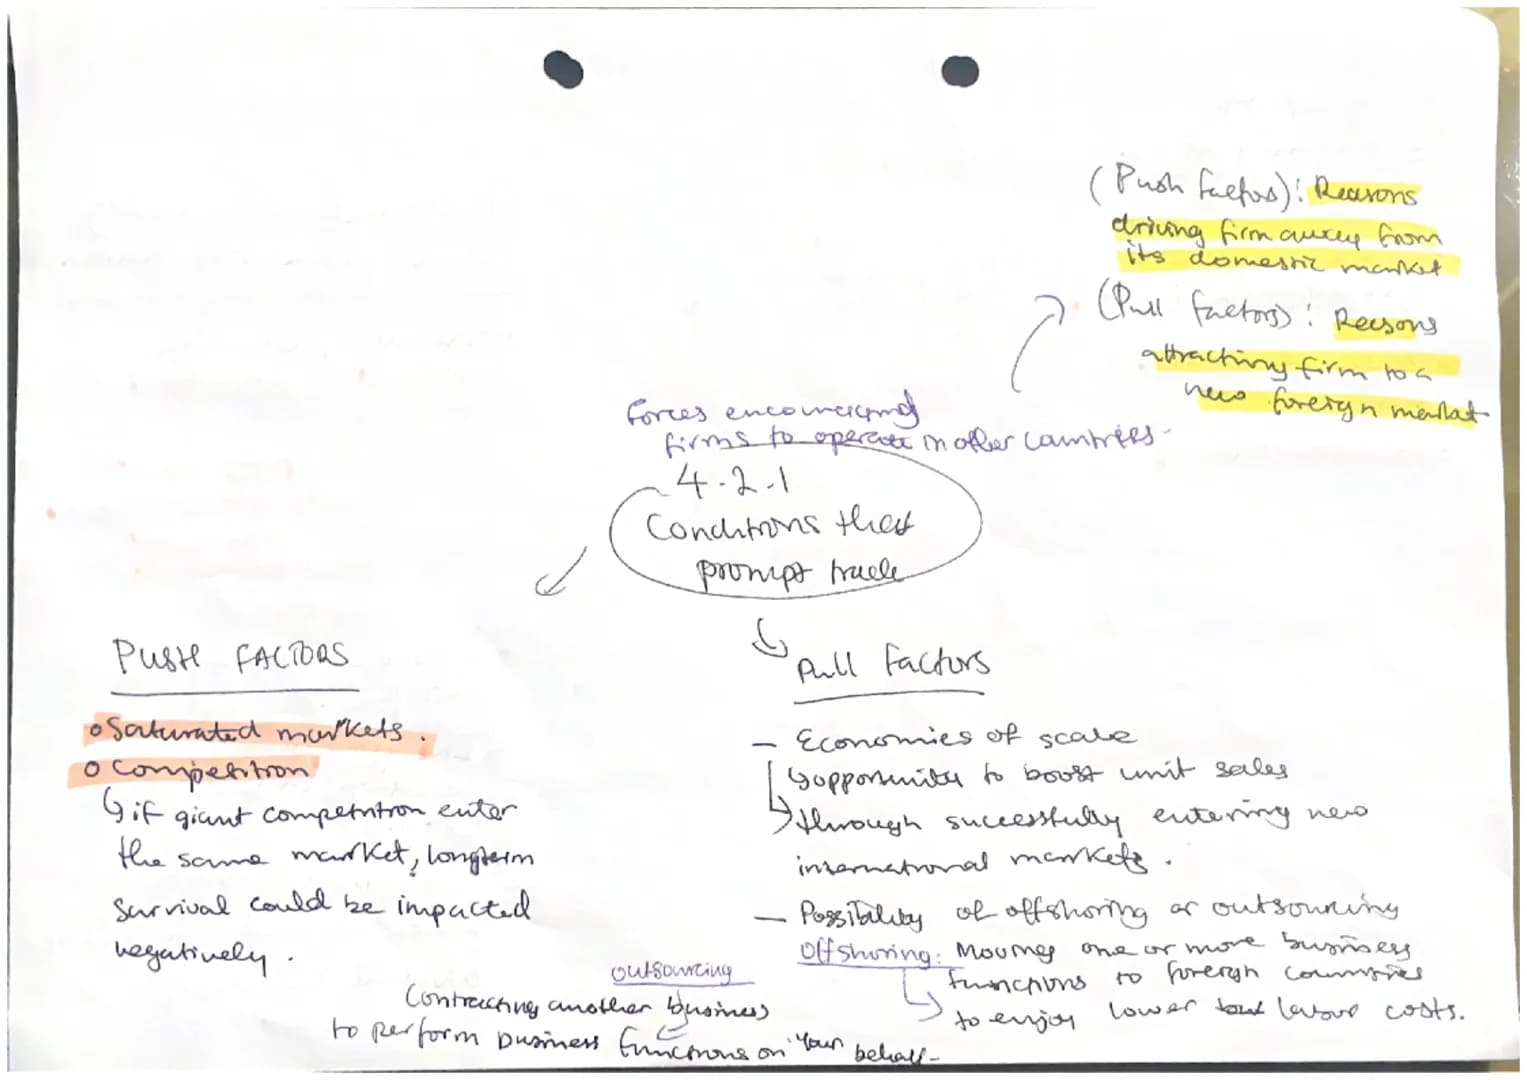 (Push factors): Reasons
driving firm away from
its domestic market
(Pull factors): Reasons
attracting firm to a
new foreign market
Forces encouraging
firms to operate in other countries-
4.2.1
Conditions that
prompt trade
PUSH FACTORS
o Saturated markets.
o Competition
↳ if giant competition enter
the same market, longterm
survival could be impacted
negatively.
Pull Factors
- Economies of scale
↳ opportunity to boost unit sales
↳ through successfully entering new
international markets.
- Possibility of offshoring or outsourcing
Offshoring: Moving one or more business
functions to foreign countries
↳ to enjoy lower labour costs.
outsourcing
Contracting another business
to perform business functions on your behalf-